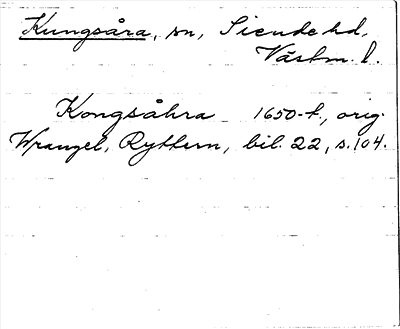 Kungsåra, sn, Siende hd,
Västm. l.
Kongsåhra 1650-t, orig.
Wrangel, Ryttern, bil. 22, s. 104.